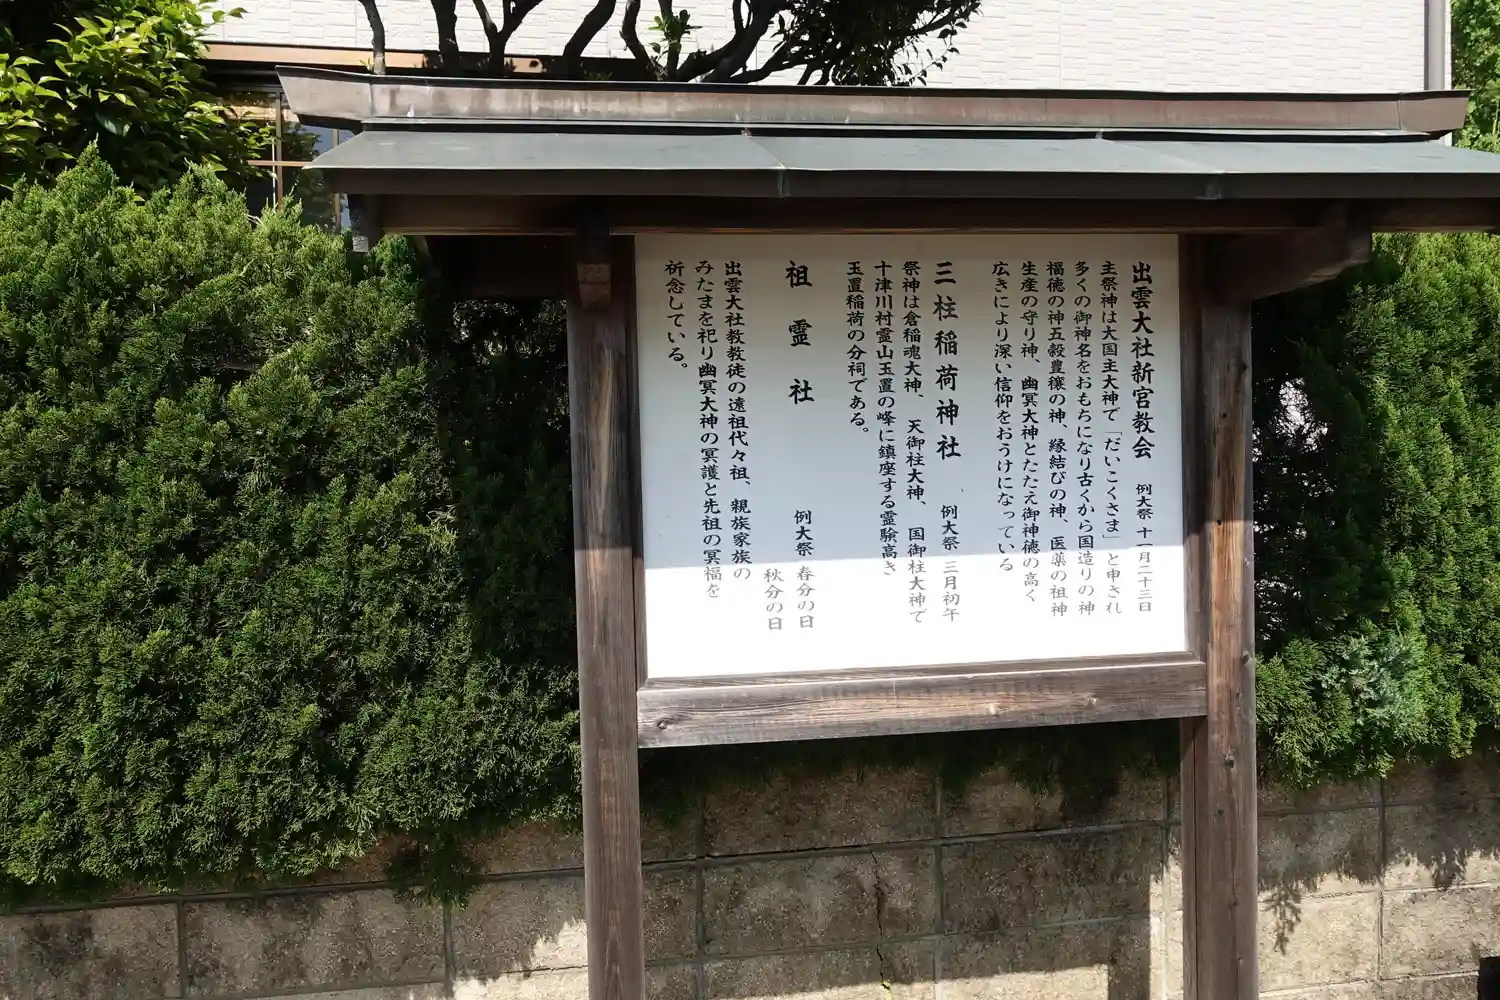 出雲大社新宮教会　例大祭　十一月二十三日
主祭神は大国主大神で「だいこくさま」と申され
多くの御神名をおもちになり古くから国造りの神
福徳の神五穀豊穣の神、縁結びの神、医薬の祖神
生産の守り神、幽冥大神とたたえ御神徳の高く
広きにより深い信仰をおうけになっている
三柱稲荷神社　例大祭　三月初午
祭神は倉稲魂大神、天御柱大神、国御柱大神で
十津川村霊山玉置の峰に鎮座する霊験高き
玉置稲荷の分祠である。
祖霊社　例大祭　春分の日
秋分の日
出雲大社教教徒の遠祖代々祖、親族家族の
みたまを祀り幽冥大神の冥護と先祖の冥福を
祈念している。